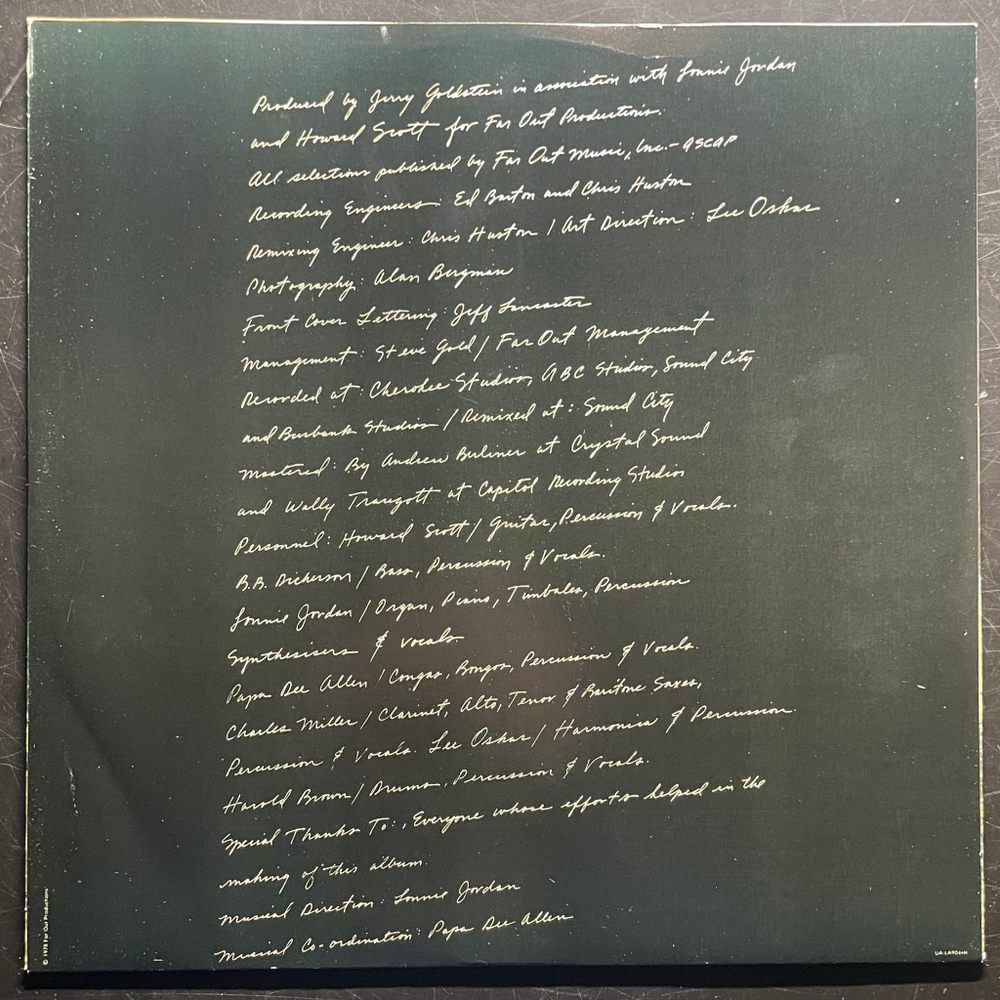 Produced by Jerry Goldstein in association with Lonnie Jordan
and Howard Scott for Far Out Productions.
All selections published by Far Out Music, Inc. - ASCAP
Recording Engineers: Ed Barton and Chris Huston
Remixing Engineer: Chris Huston / Art Direction: Lee Oskar
Photography: Alan Bergman
Front Cover Lettering: Jeff Lancaster
Management: Steve Gold / Far Out Management
Recorded at: Cherokee Studios, ABC Studios, Sound City
and Burbank Studios / Remixed at: Sound City
Mastered: By Andrew Berliner at Crystal Sound
and Wally Traugott at Capitol Recording Studios
Personnel: Howard Scott / Guitar, Percussion & Vocals.
B.B. Dickerson / Bass, Percussion & Vocals.
Lonnie Jordan / Organ, Piano, Timbales, Percussion
Synthesisers & vocals
Papa Dee Allen / Congas, Bongos, Percussion & Vocals.
Charles Miller / Clarinet, Alto, Tenor & Baritone Saxes,
Percussion & Vocals. Lee Oskar / Harmonica & Percussion.
Harold Brown / Drums, Percussion & Vocals.
Special Thanks To:, Everyone whose efforts helped in the
making of this album.
Musical Direction: Lonnie Jordan
Musical Co-ordination: Papa Dee Allen
© 1978 Far Out Productions
UA-LA904-H